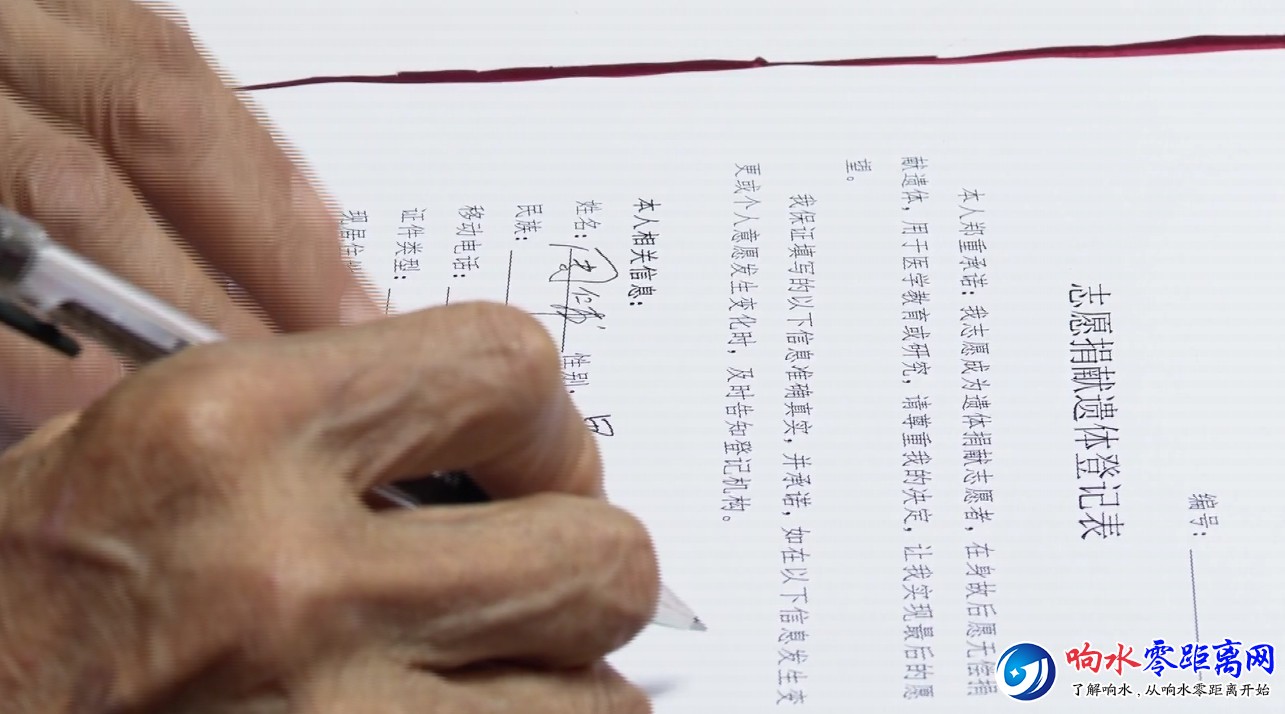 编号：
志愿捐献遗体登记表
本人郑重承诺：我志愿成为遗体捐献志愿者，在身故后愿无偿捐
献遗体，用于医学教育或研究，请尊重我的决定，让我实现最后的愿
望。
我保证填写的以下信息准确真实，并承诺，如在以下信息发生变
更或个人意愿发生变化时，及时告知登记机构。
本人相关信息：
姓名： 性别：
民族：
移动电话：
证件类型：
现居住
响水零距离网
了解响水，从响水零距离开始